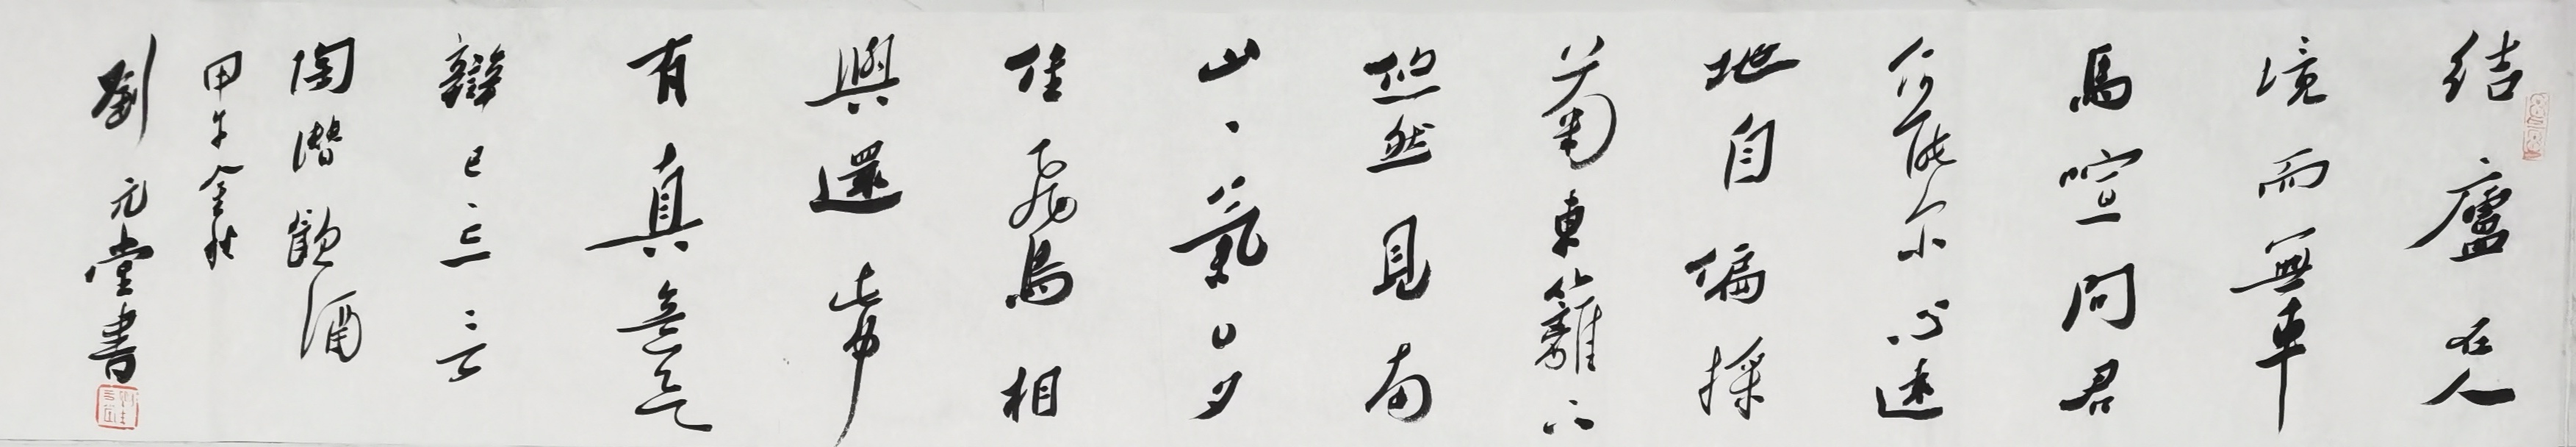 結廬在人
境而無車
馬喧問君
何能尔心遠
地自偏採
菊東籬下
悠然見南
山、氣日夕
佳飛鳥相
與還此中
有真意欲
辯已忘言
陶潛飲酒
甲午金秋
劉元堂書